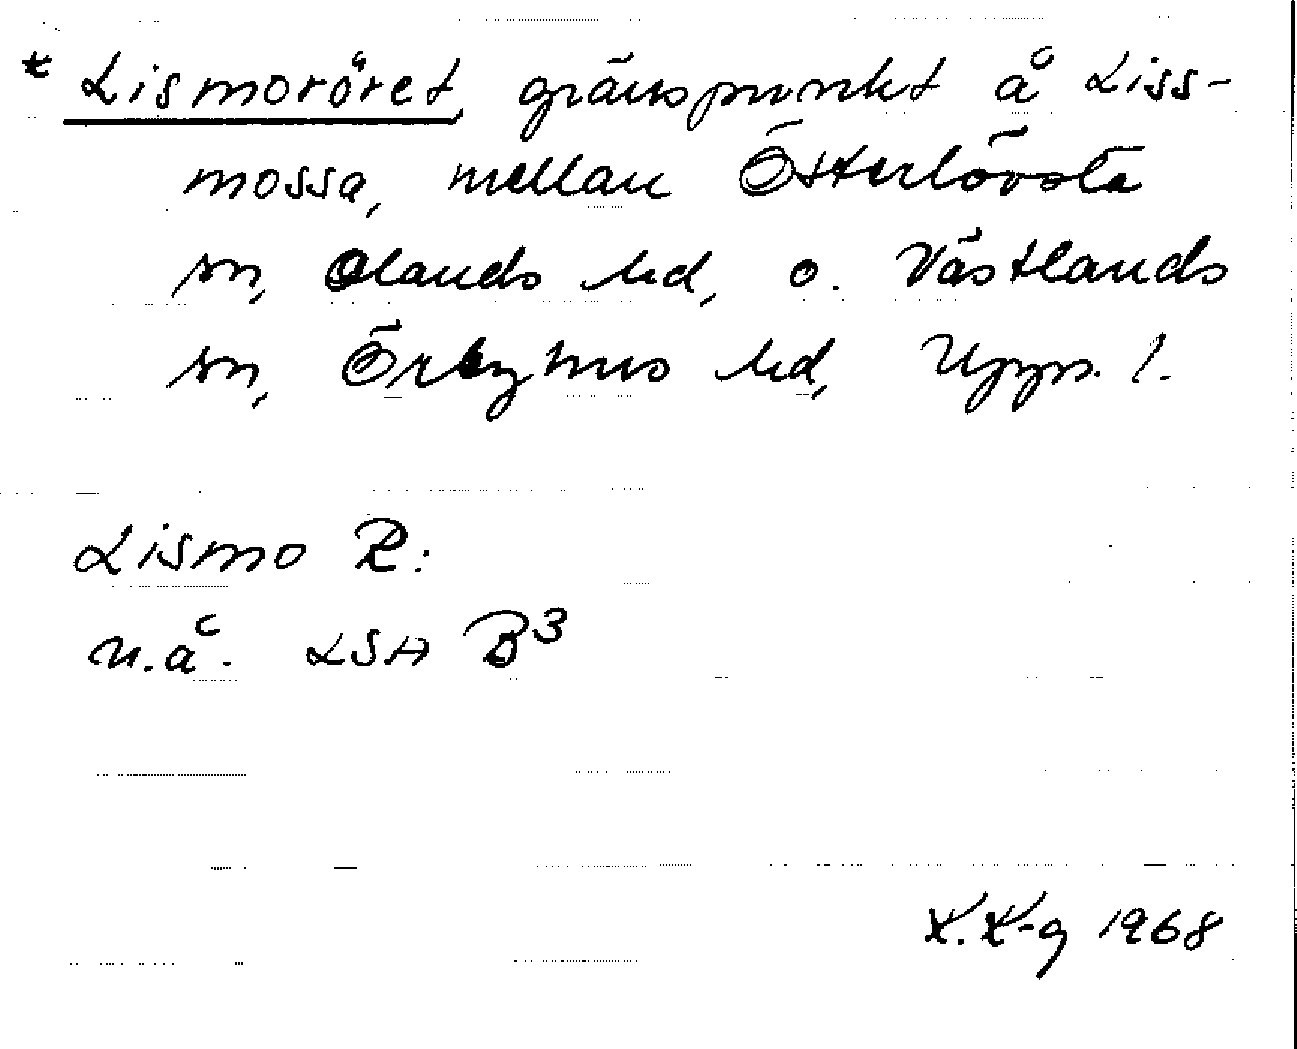 * Lismoröret, gränspunkt å Liss-
mossa, mellan Österlövsta
sn, Olands hd, o. Västlands
sn, Örbyhus hd, Upps. l.
Lismo R:
n.å. LSA B3
K.K-g 1968